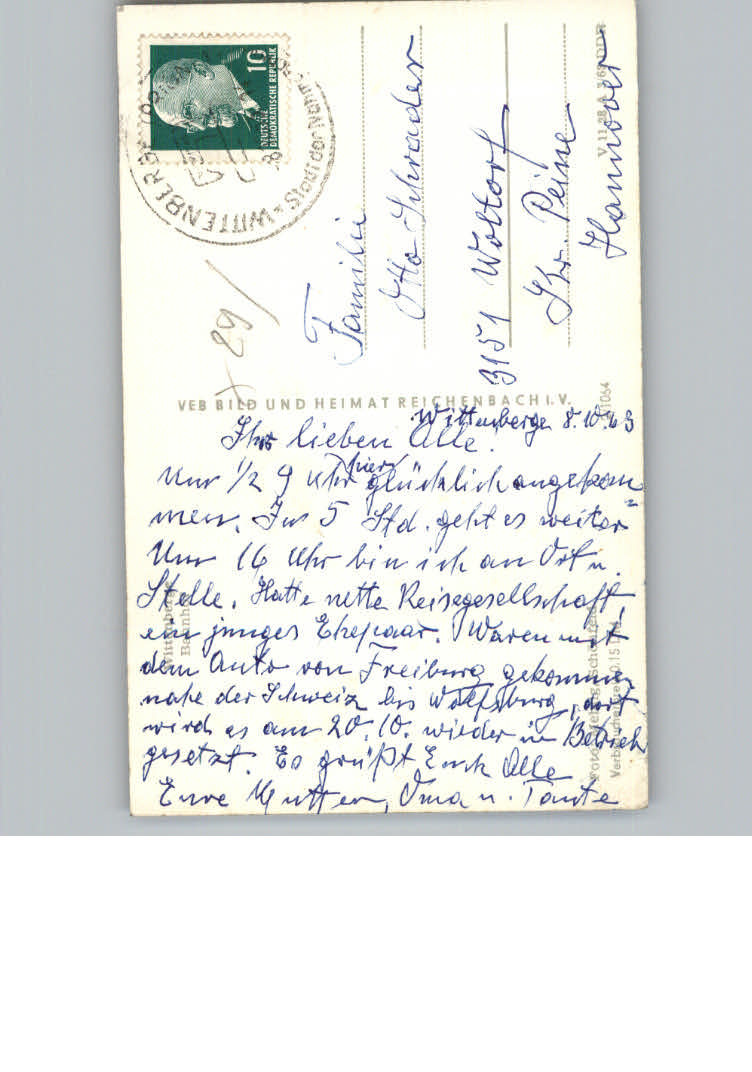 10
DEUTSCHE
DEMOKRATISCHE REPUBLIK
WITTENBERGE
Stadt der
Familie
Otto Schrader
3151 Woltorf
Kr. Peine
Hannover
V 11 28 A 3/63 DDR
+ 89 /
VEB BILD UND HEIMAT REICHENBACH I. V.
1064
Wittenberge
Bahnhof
Verbraucherpreis 0,15 DM
Wittenberge 8.10.63
Ihr lieben Alle!
Um 1/2 9 Uhr hier glücklich angekom
men. In 5 Std. geht es weiter
Um 16 Uhr bin ich an Ort u.
Stelle. Hatte nette Reisegesellschaft,
ein junges Ehepaar. Waren mit
dem Auto von Freiburg gekommen
nahe der Schweiz bis Wolfsburg, dort
wird es am 20.10. wieder in Betrieb
gesetzt. Es grüßt Euch Alle
Eure Mutter, Oma u. Tante